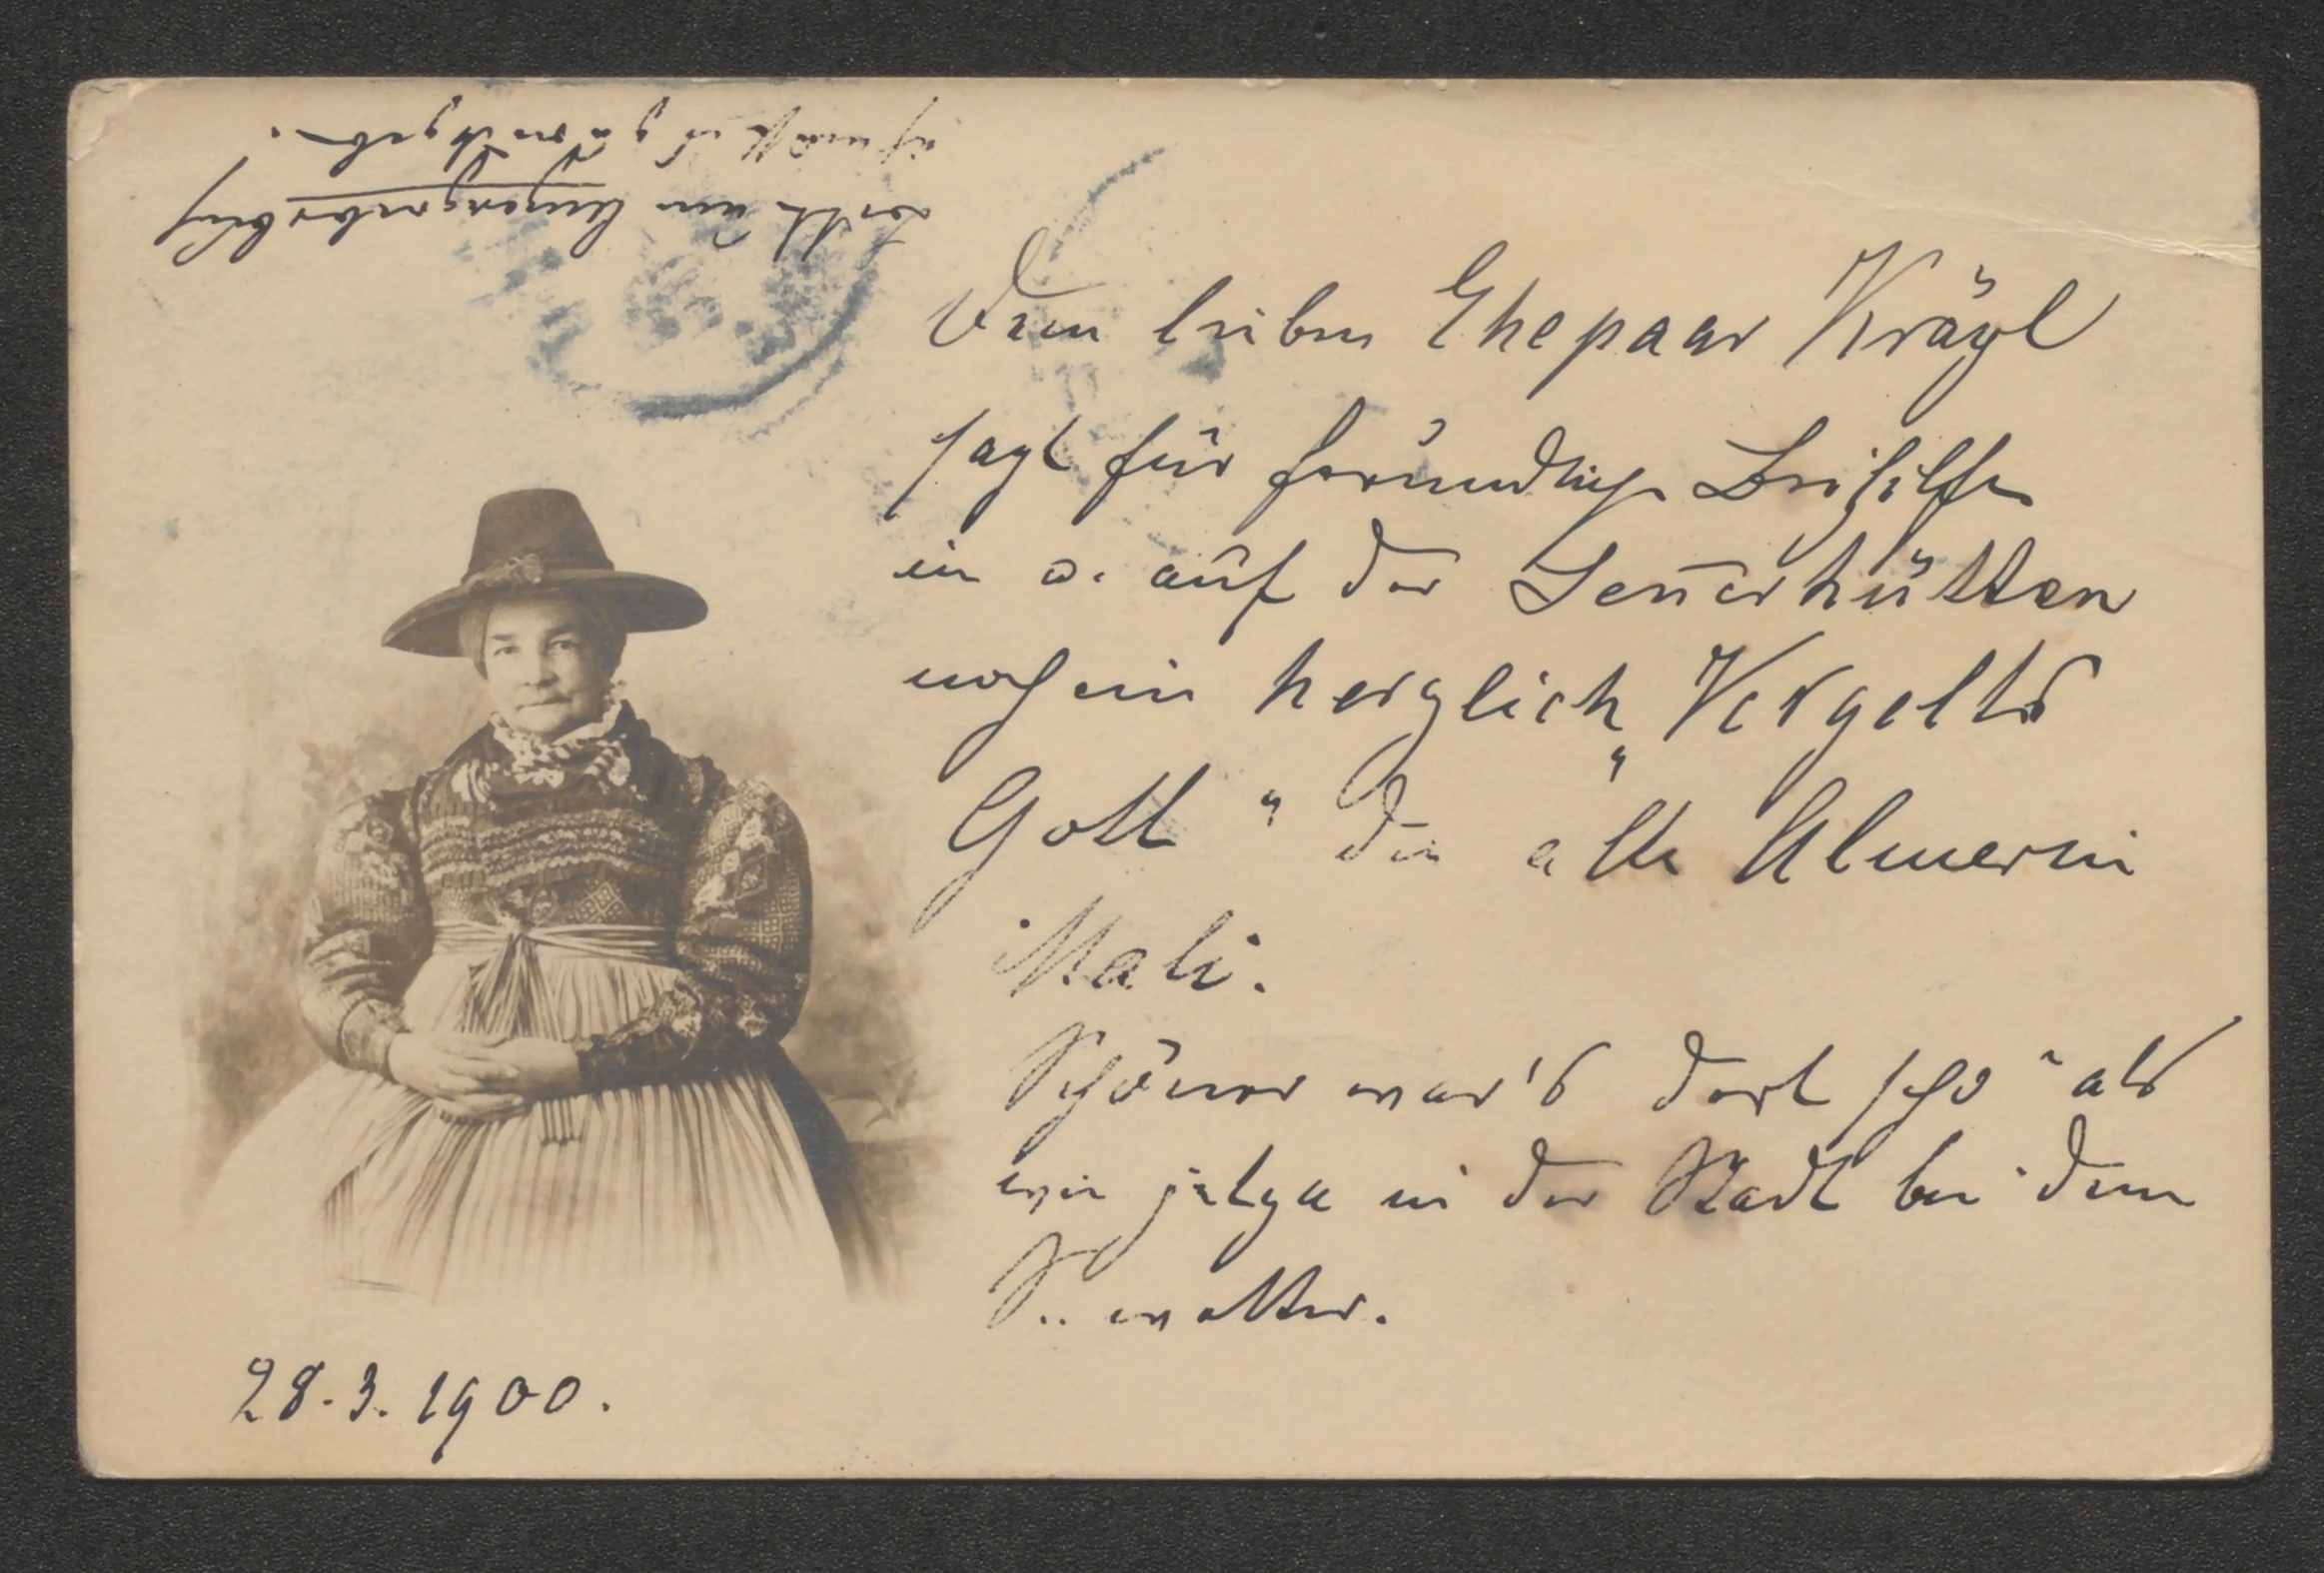 Dem lieben Ehepaar Krägl
sagt für freundliche Beihilfe
in u. auf der Señerhütten
noch ein herzlich „Vergelts
Gott“ die alte Almerin
Mali.
Schöner war's dort scho als
wie jetza in der Stadt bei dem
S.. wetter.
28.3.1900.